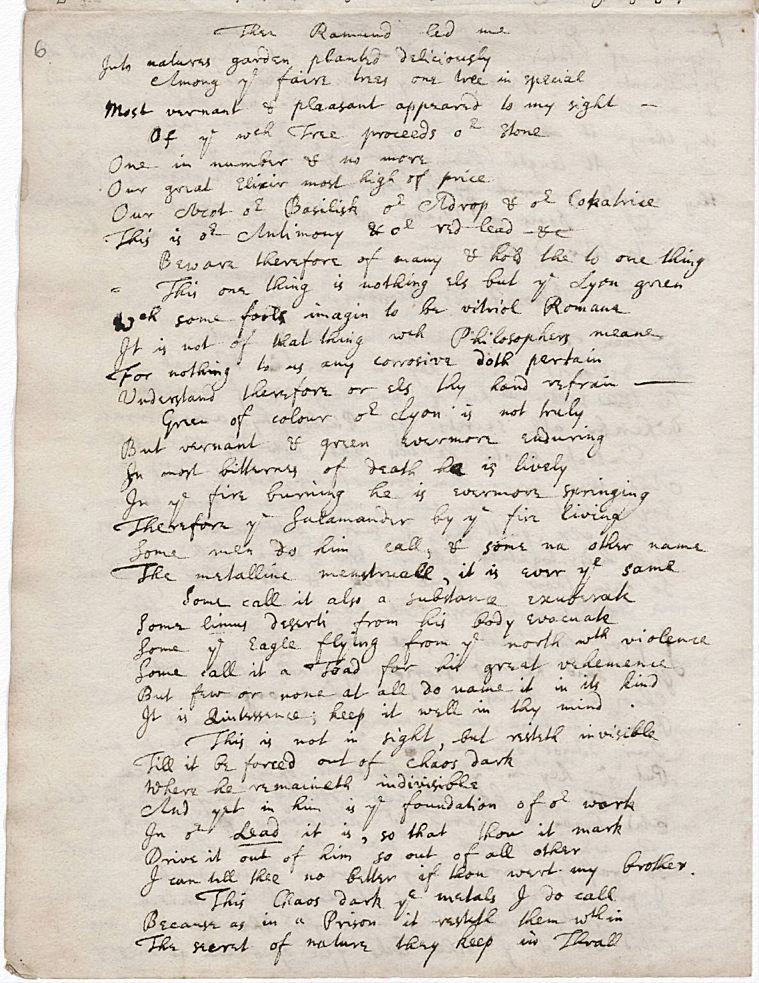 6
Then Ramund led me
Into natures garden planted deliciously
Among yͤ faire trees one tree in special
Most vernant & pleasant appeared to my sight —
Of yͤ wch Tree proceeds oʳ stone
One in number & no more
Our great Elixir most high of price
Our Azot oʳ Basilisk oʳ Adrop & oʳ Cokatrice
This is oʳ Antimony & oʳ red lead &c
Beware therefore of many & hold the to one thing
This one thing is nothing els but yͤ Lyon green
Wch some fools imagin to be vitriol Romane
It is not of that thing wch Philosophers meane
For nothing to us any corrosive doth pertain
Understand therefore or els thy hand refrain —
Green of colour oʳ Lyon is not truly
But vernant & green evermore enduring
In most bitternes of death he is lively
In yͤ fire burning he is evermore springing
Therefore yͤ Salamander by yͤ fire living
Some men do him call, & some na other name
The metalline menstruall, it is ever yͤ same
Some call it also a substance exuberate
Some limus deserti from his body evacuate
Some yͤ Eagle flying from yͤ north wth violence
Some call it a Toad for his great vehemence
But few or none at all do name it in its kind
It is Quintessence; keep it well in thy mind.
This is not in sight, but resteth invisible
Till it be forced out of chaos dark
Where he remaineth indivisible
And yet in him is yͤ foundation of oʳ work
In oʳ Lead it is, so that thou it mark
Drive it out of him so out of all other
I can tell thee no better if thou wert my brother.
This Chaos dark yͤ metals I do call
Because as in a Prison it resteth them wthin
The secret of nature they keep in Thrall